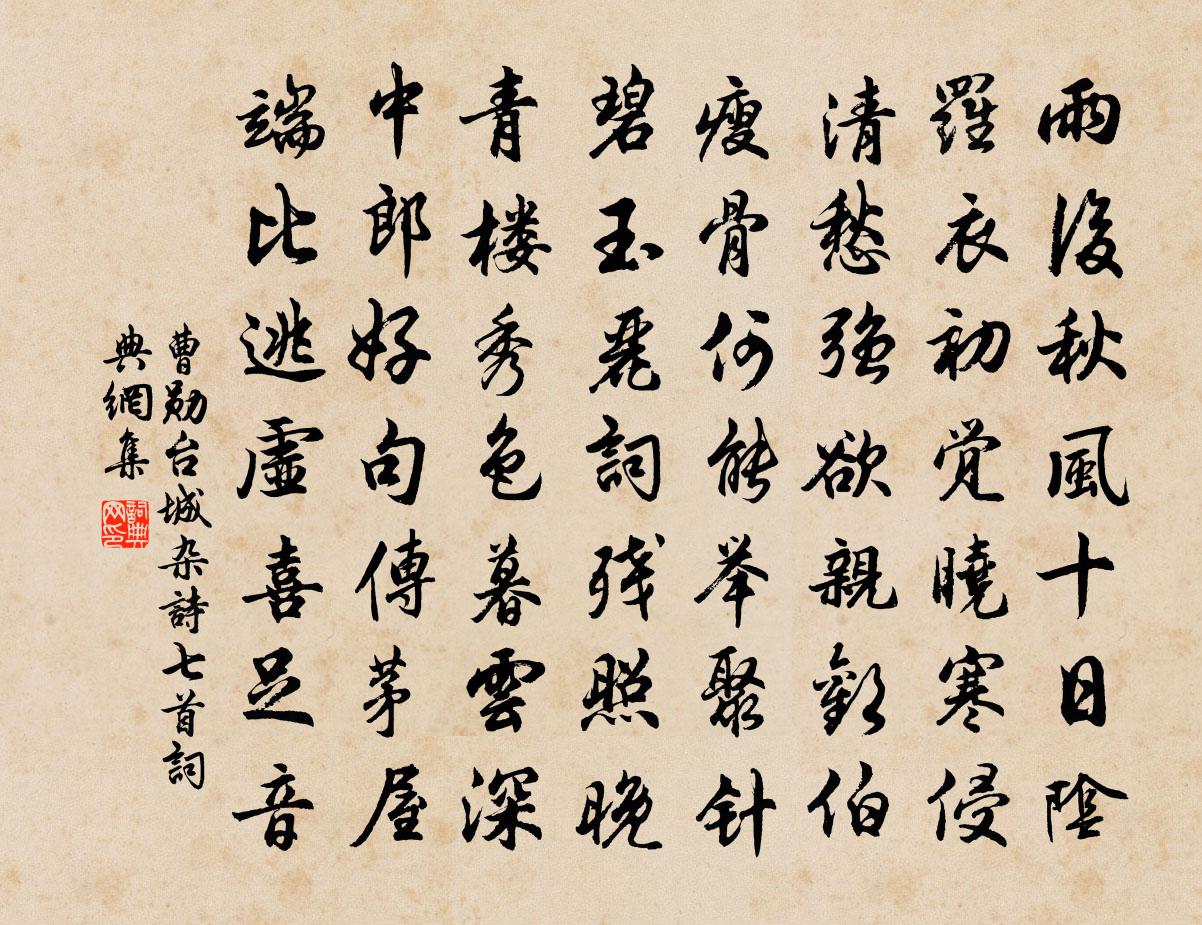 雨後秋風十日陰
羅衣初覚曉寒侵
清愁強欲親歡伯
瘦骨何能举聚针
碧玉麗詞残照晚
青楼秀色暮雲深
中郎好句傳茅屋
端比逃虛喜足音
曹勋台城杂詩七首詞
典網集
詞典网印